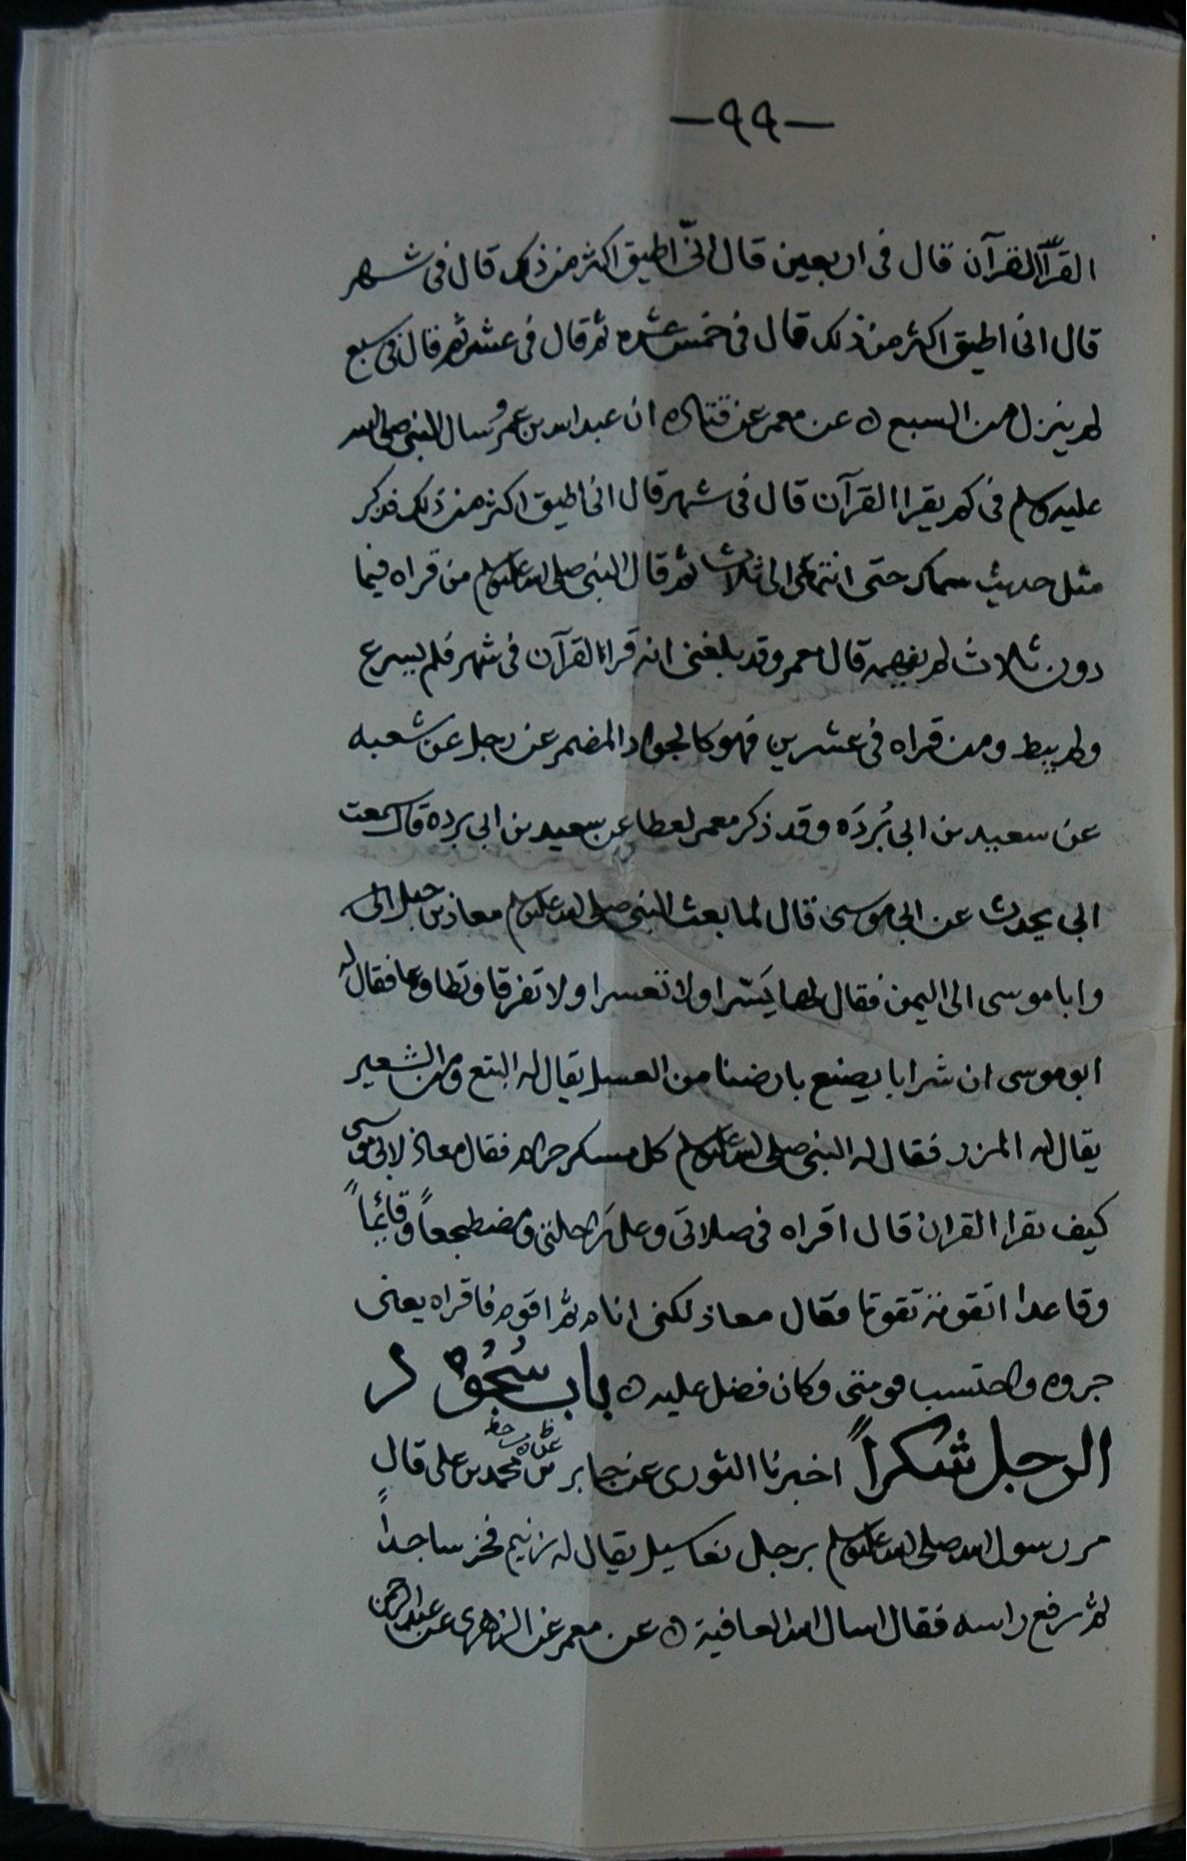 -٩٩-
القرآ القرآن قال فى اربعين قال انّى اطيق اكثر من ذلك قال فى شهر
قال انى اطيق اكثر من ذلك قال فى خمس عشره ثم قال فى عشر ثم قال فى سبع
لم ينزل من السبع ٥ عن معمر عن قتاده ان عبد الله بن عمرو سال النبى صلى الله
عليه وسلم فى كم يقرا القرآن قال فى شهر قال انى اطيق اكثر من ذلك فذكر
مثل حديث سماك حتى انتهى الى ثلاث ثم قال النبى صلى الله عليه وسلم من قراه فيما
دون ثلاث لم يفهمه قال معمر وقد بلغنى انه من قرا القرآن فى شهر فلم يسرع
ولم يبط ومن قراه فى عشرين فهو كالجواد المضمر عن رجل عن شعبه
عن سعيد بن ابى بُردَه وقد ذكر معمر لعطا عن سعيد بن ابى برده قال سمعت
ابى يحدث عن ابى موسى قال لما بعث النبى صلى الله عليه وسلم معاذ بن جبل الى
وابا موسى الى اليمن فقال لهما يَسّرا ولا تعسرا ولا تفرقا وتطاوعا فقال له
ابو موسى ان شرابا يصنع بارضنا من العسل يقال له البتع ومن الشعير
يقال له المزر فقال له النبى صلى الله عليه وسلم كل مسكر حرام فقال معاذ لابى موسى
كيف تقرا القران قال اقراه فى صلاتى وعلى راحلتى ومضطجعاً وقائماً
وقاعدا اتفوقه تفوقا فقال معاذ لكنى انام ثم اقوم فاقراه يعنى
جزوه واحتسب قومتى وكان فضل عليه ٥ باب سُجُوْد
الرجل شكراً اخبرنا الثورى عن جابر عن محمد بن على قال
مر رسول الله صلى الله عليه وسلم برجل نغاسيل يقال له زنيم فخر ساجداً
ثم رفع راسه فقال اسال الله العافية ٥ عن معمر عن الزهرى عن عبد الرحمن